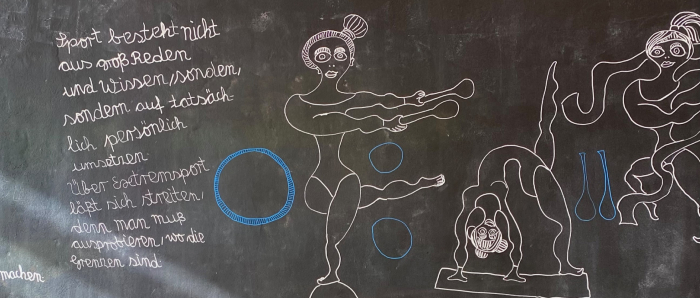 Sport besteht nicht
aus groß Reden
und Wissen, sonden,
sondern auf tatsäch-
lich persönlich
umsetzen
Über Exetremsport
läßt sich streiten,
denn man muß
ausprobieren, wo die
Grenzen sind
machen